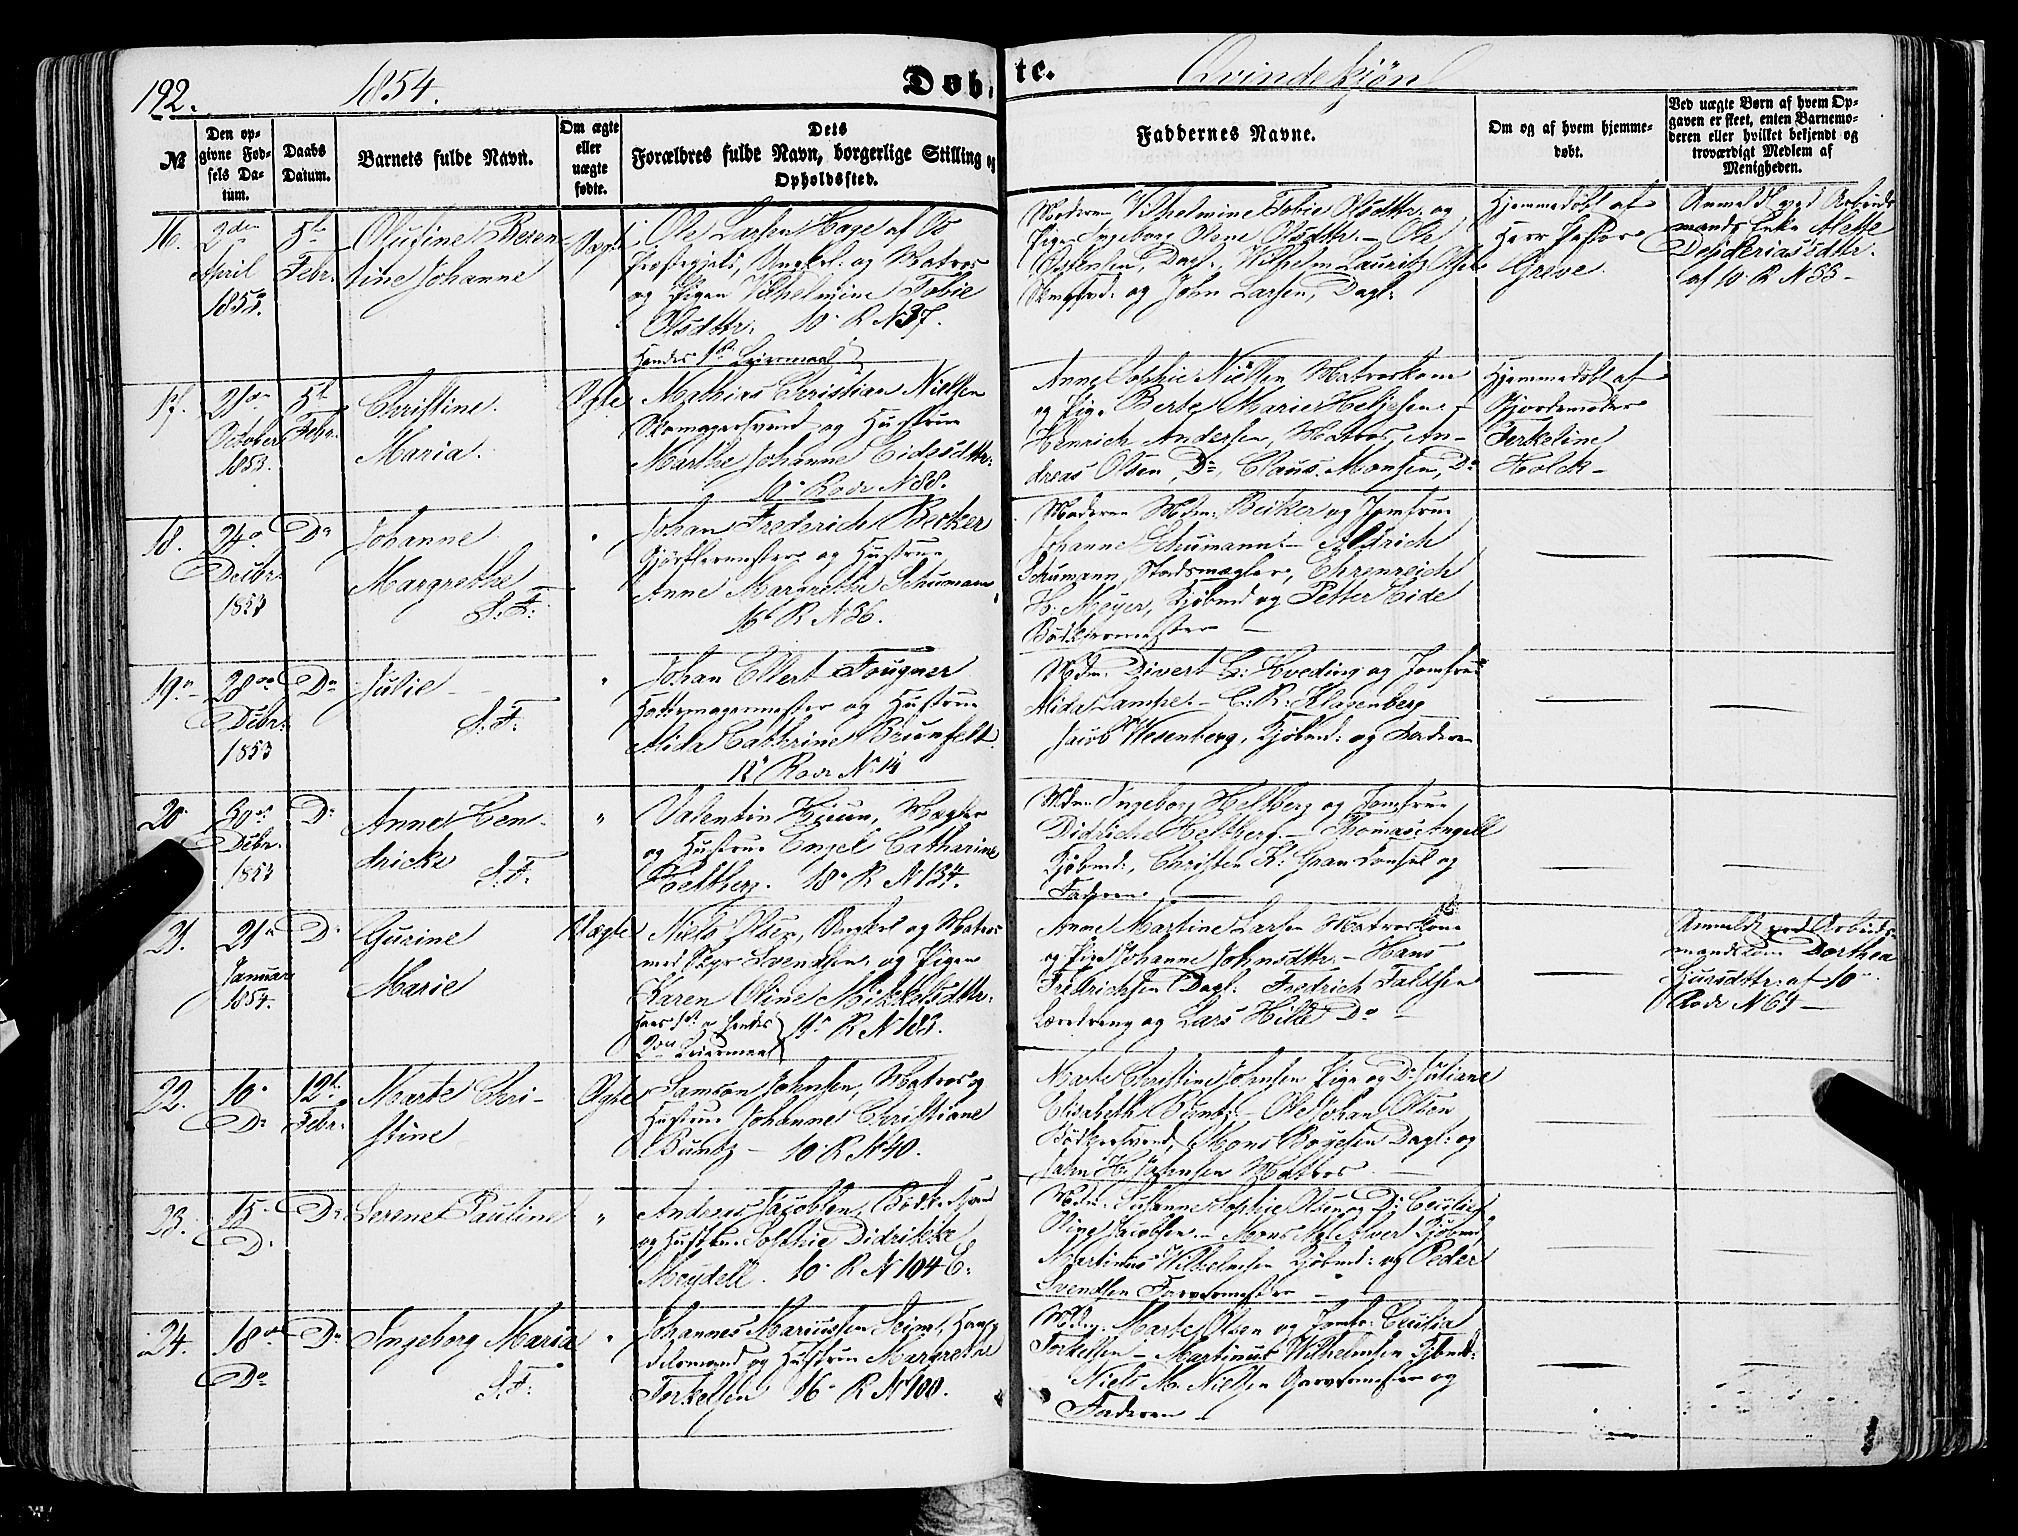 192.
1854.
Døbte.
Qvindekjøn
No
Den opgivne Fødsels Datum.
Daabs Datum.
Barnets fulde Navn.
Om ægte eller uægte fødte.
Dets Forældres fulde Navn, borgerlige Stilling og Opholdssted.
Faddernes Navne.
Om og af hvem hjemmedøbt.
Ved uægte Børn af hvem Opgaven er skeet, enten Barnemoderen eller hvilket bekjendt og troværdigt Medlem af Menigheden.
16.
2den
April
1853.
5te
Febr.
Olufine Beren
tine Johanne
Uægte
Ole Larsen Hage af Os
Præstegjeld, Ungkrl: og Matros
og Pigen Vilhelmine Tobie
Olsdttr: 10. R N 37.
Hendes 1ste Leiermaal
Moderen Vilhelmine Tobie Olsdttr. og
Pigen Ingeborg Olene Olsdttr. – Ole
Dagl., Vilhelm Lauritz
og John Larsen, Dagl:
Hjemmedøbt af
Herr Pastor
Greve.
Anmeldt ved Arbeids
mands Enke Mette
Desideriasdttr.
af 10. R N 55 –
17.
21de
October
1853.
5te
Febr.
Christine
Maria.
Ægte
Mathias Christian Nielsen
Skomagersvend og Hustrue
Marthe Johanne Eidesdttr:
10. Rode N 88.
Anne Sophie Nielsen Matroskone
og Pige Berte Marie Heljesen –
Henrich Andersen, Matros, An-
dreas Olsen, Do, Claus Monsen, Do
Hjemmedøbt af
Gjordemoder
Terkeline
Holck –
18.
24de
Decbr.
1853
Do
Johanne
Margrethe
S. F.
"
Johan Frederich Becker
Gjørtlermester og Hustrue
Anne Margrethe Schumann
16. R N 56.
Moderen Mdm: Becker og Jomfrue
Johanne Schumann – Aldrich
Schumann, Stadsmægler, Ehrenreich
H. Meyer, Kjøbmd og Petter Eide
Bødkermester –
19.
28de
Decbr.
1853
Do
Julie
S. F.
"
Johan Ellert Fougner
Hattemagermester og Hustrue
Alida Cathrine Bruunfelt
12. Rode N. 14
Mdm: Divert G: Hveding og Jomfrue
Alida Lampe. – C: R: Klagenberg
Jacob Wesenberg, Kjøbmd: og Faderen
20.
30de
Decbr.
1853
Do
Anne Hen-
dricke
S. F.
"
Valentin Hiuun, Mægler
og Hustrue Engel Catharine
Heltberg. 18. R N 134.
Mdm: Ingeborg Heltberg og Jomfrue
Didriche Heltberg. – Thomas Angell
Kjøbmd:, Christen K: Gran Consul og
Faderen –
21.
21de
Januar
1854.
Do
Gurine
Marie
Uægte
Niels Olsen, Ungkrl og Matros
med Svendsen og Pigen
Karen Oline Mikkelsdttr:
Hans 1ste og hendes
2den Leiermaal
19. R N 183.
Anne Martine Larsen Matroskone
og Pige Johanne Johnsdttr. – Hans
Fredrichsen Dagl: Fredrich Faldsen
Læredreng og Lars Hille Do
Anmeldt ved Arbeids
mandskone Dorthea
Guursdttr: af 10
Rode N 69 –
22.
16.
Do
12te
Febr:
Marte Chri-
stine
Ægte
Samson Johnsen, Matros og
Hustrue Johanne Christiane
Buntz – 10. R N 40.
Marte Christine Johnsen Pige og Do Juliane
Elisabeth Buntz – Ole Johan Olsen
Bødkersvend, Mons Bøyesen Dagl: og
John Hr. Johnsen Matros –
23.
15.
Do
Do
Serene Pauline
"
Anders Jacobsen, Bødkersvend
og Hustrue Sophie Didrikke
Meydell. 10. R N 104 C:
Mdm. Susanne Sophie Olsen og Do Cecilie
Oline Jacobsen. – Mons M. Alver Kjøbmd
Martinus Wilhelmsen Kjøbmd: og Peder
Svendsen Farvermester –
24.
18de
Do
Do
Ingeborg Maria
S. F.
"
Johannes Mariussen Seim,
delsmand og Hustrue Margrethe
Terkelsen 16. R N 100.
Mdm. Marte Olsen og Jomfr: Cecilia
Terkelsen – Martinus Wilhelmsen Kjøbmd:
Niels M. Nielsen Garvermester og
Faderen –